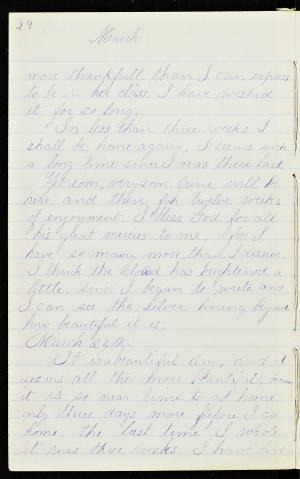 29
March
more thankfull than I can express
to be in her class. I have wished
it for so long.
In less than three weeks I
shall be home again. It seems such
a long time since I was there last
Yet soon, very soon, June will be
here, and then for twelve weeks
of enjoyment. I bless God for all
his great mercies to me, for I
have so many more than I deserve
I think the cloud has brightened a
little, since I began to write and
I can see the silver lining beyond
how beautiful it is.
March 24th
It is a beautiful day, and it
seems all the more beautiful, because
it is so near time to go home
only three days more before I go
home. the last time I wrote
it was three weeks I have not